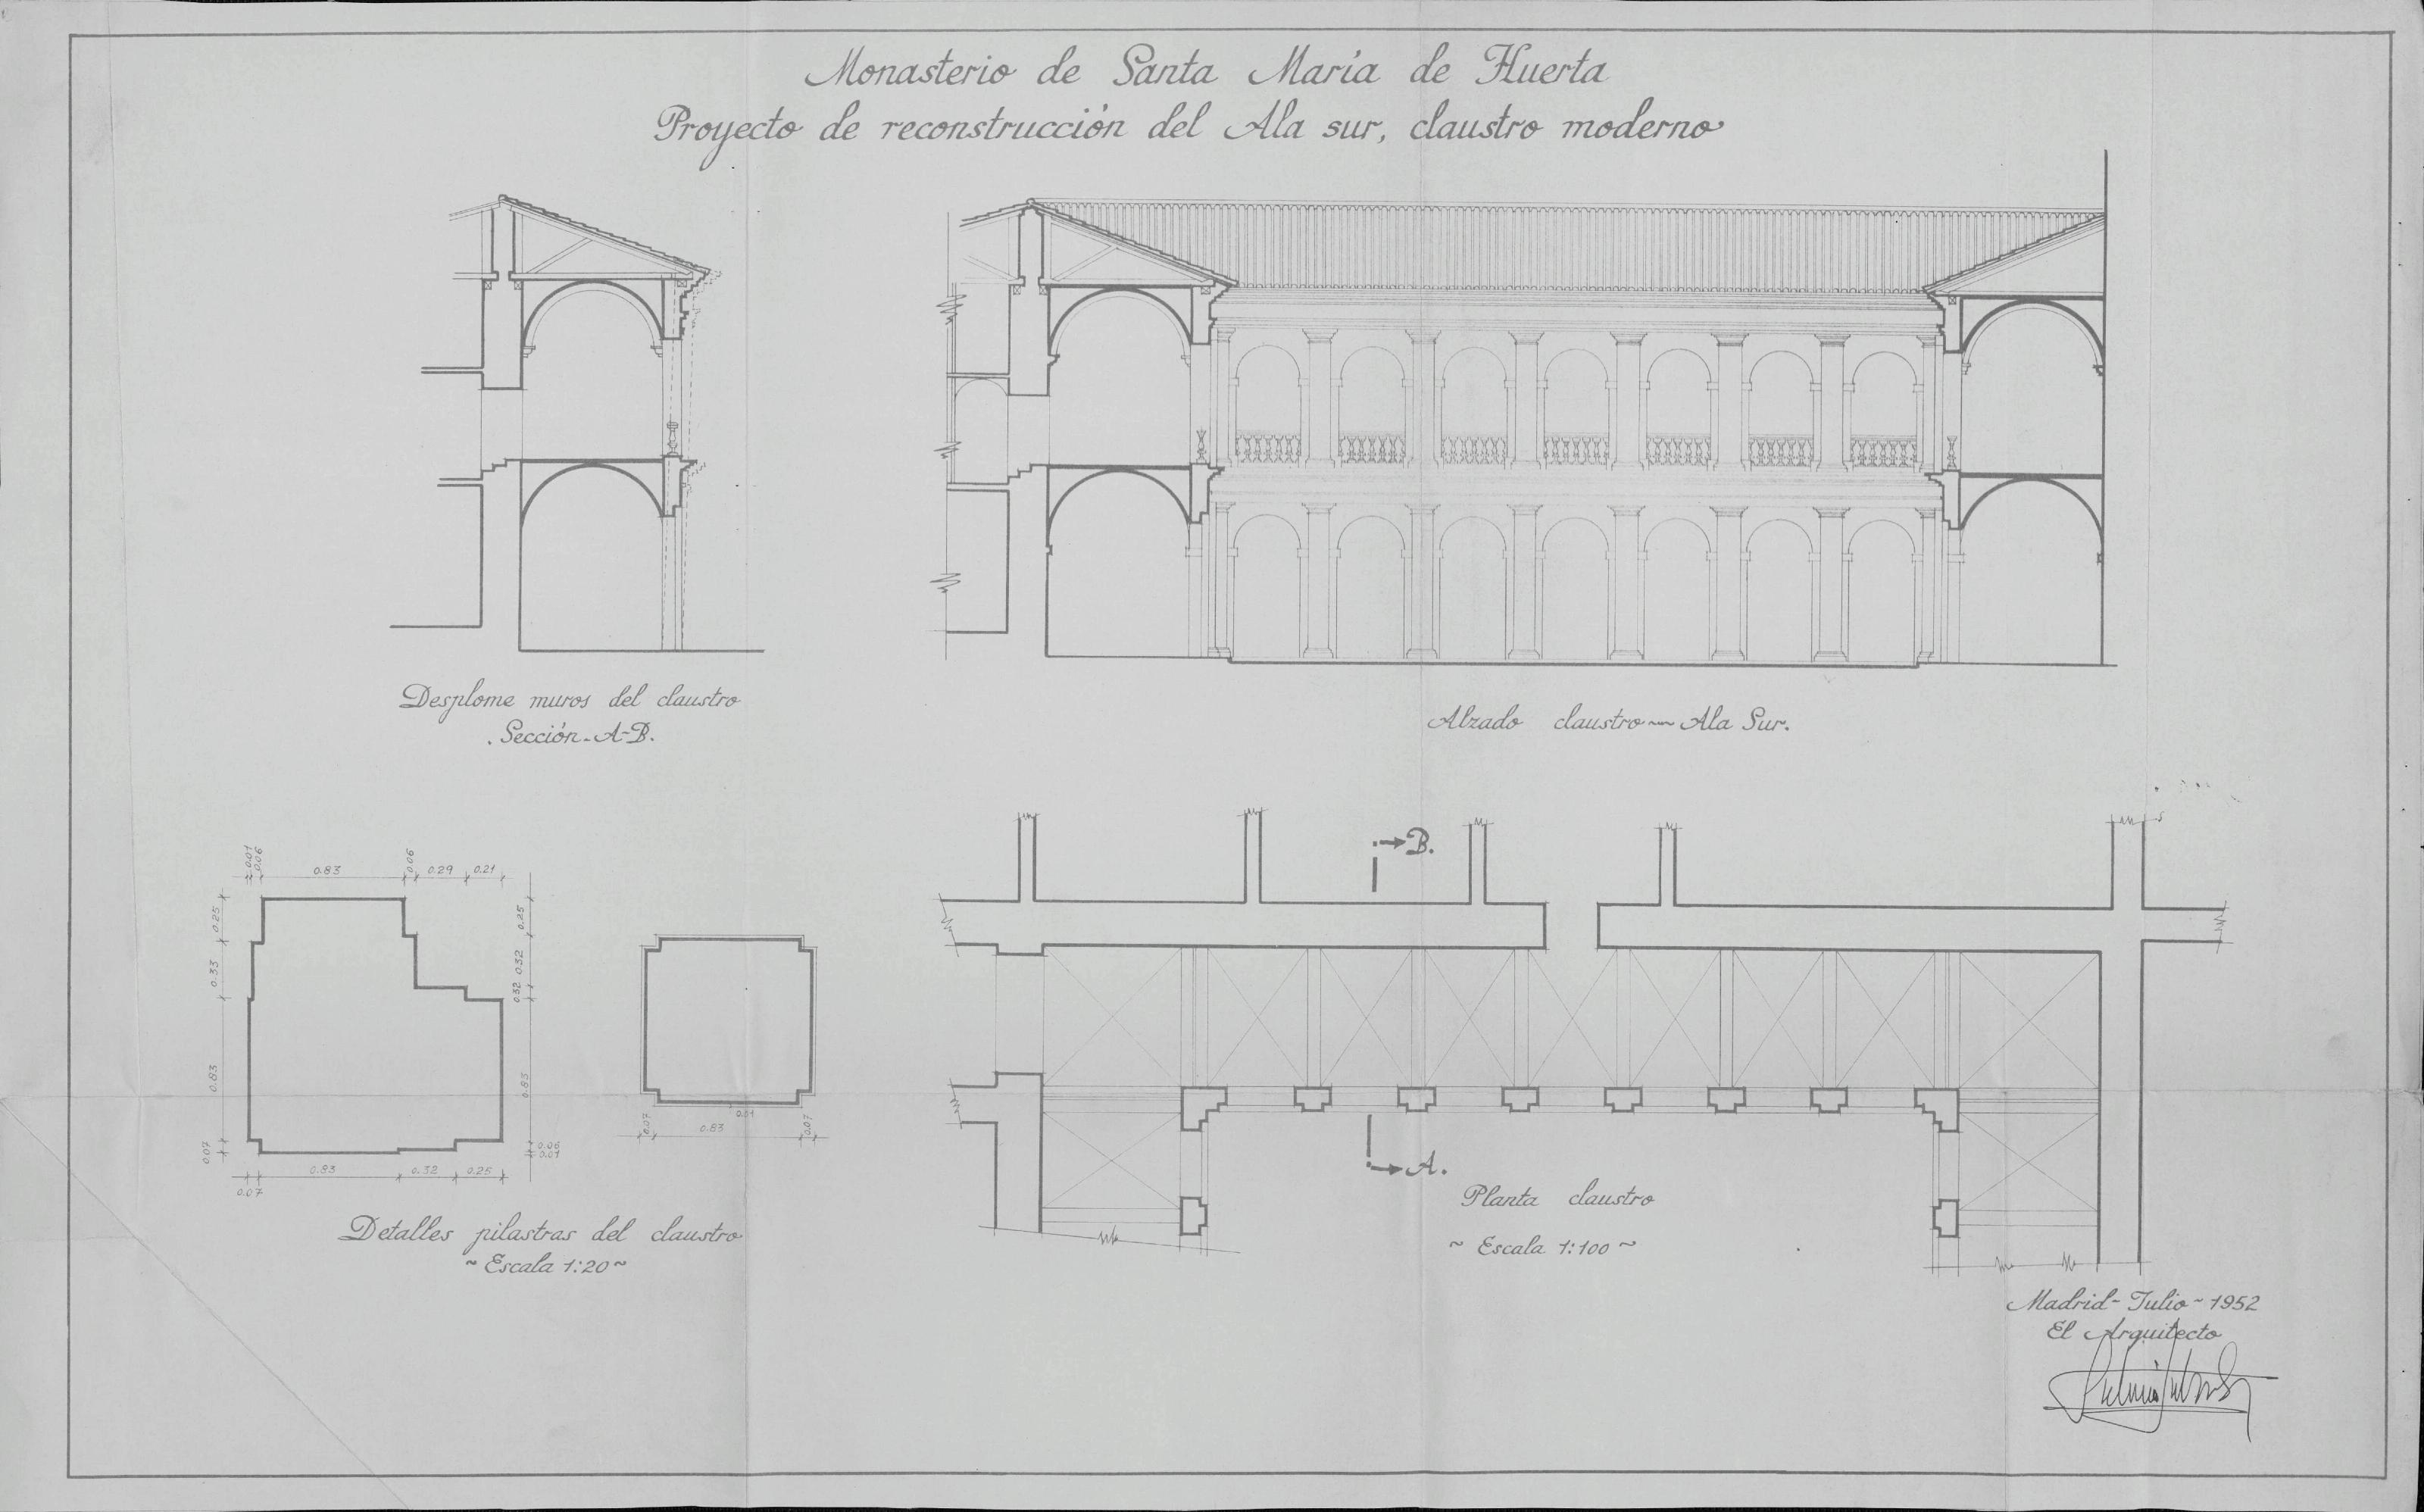 Monasterio de Santa María de Huerta
Proyecto de reconstrucción del Ala sur, claustro moderno
Desplome muros del claustro
Sección-A-B.
Alzado claustro ~ Ala Sur.
0.01
0.06
0.83
0.06
0.29
0.21
0.25
0.33
0.83
0.07
0.25
0.32
0.32
0.83
0.06
0.01
0.07
0.83
0.32
0.25
0.07
0.83
0.01
0.07
Detalles pilastras del claustro
~ Escala 1:20 ~
B.
A.
Planta claustro
~ Escala 1:100 ~
Madrid - Julio - 1952
El Arquitecto